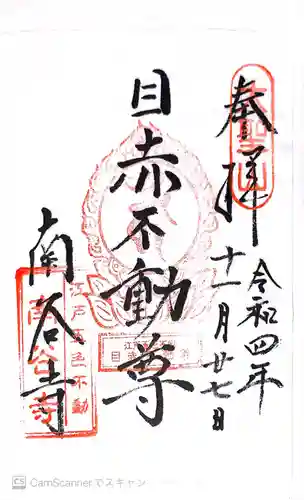 奉拝
令和四年
十一月廿七日
目赤不動尊
南谷寺
江戸五色不動
南谷寺
CS CamScannerでスキャン